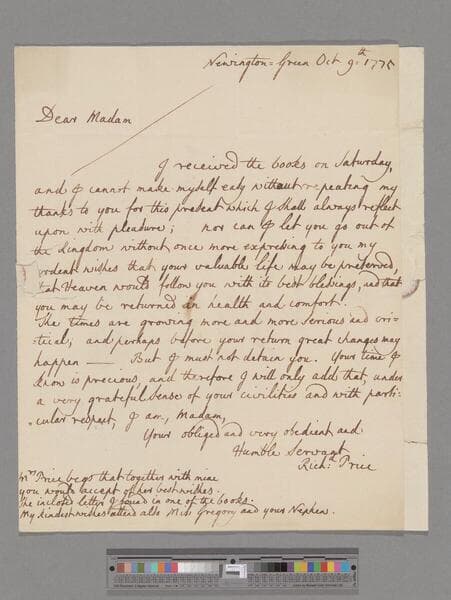 Newington-Green Oct 9.th 1775
Dear Madam
I received the books on Saturday,
and I cannot make myself easy without repeating my
thanks to you for this present which I shall always reflect
upon with pleasure; nor can I let you go out of
the Kingdom without once more expressing to you my
rdent wishes that your valuable life may be preserved,
at Heaven would follow you with its best blessings, and that
you may be returned in health and comfort.
The times are growing more and more serious and cri-
-tical; and perhaps before your return great changes may
happen — But I must not detain you. Your time I
know is precious, and therefore I will only add that, under
a very grateful sense of your civilities and with parti-
-cular respect, I am, Madam,
Your obliged and very obedient and
Humble Servant
Rich.d Price
Mrs Price begs that together with mine
you would accept of her best wishes.
The inclosed letter I found in one of the books.
My kindest wishes attend also Miss Gregory and your Nephew.